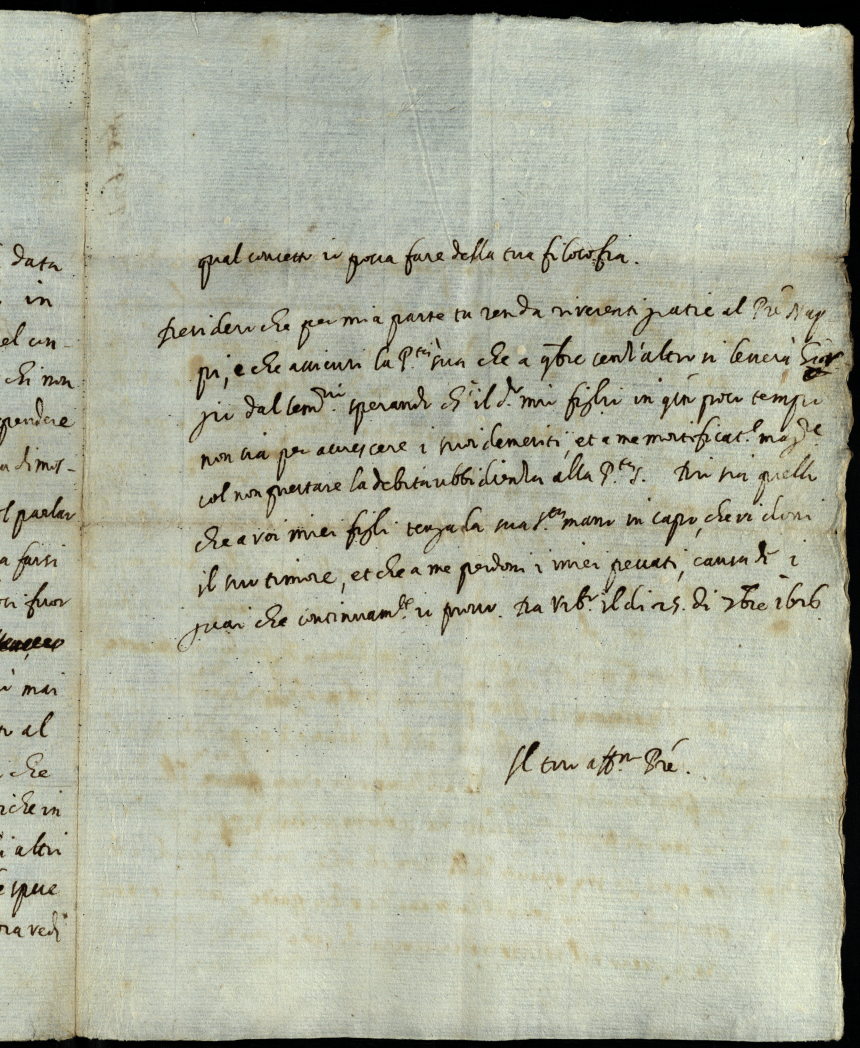 data
in
el con-
chi non
prendere
dimos-
l parlar
a farsi
fuor
mai
al
che
iche in
i altri
spue
ra vedi
qual concetto io possa fare della tua filosofia.
Desidero che per mia parte tu renda riverenti gratie al Pre Nap
pi, e che assicuri la P.tà sua che a 9bre senz'altro si leverà Gior
gio dal sem.rio sperando ch' il d.o mio figlio in q.to poco tempo
non sia per accrescere i suoi demeriti, et a me mortificat.e mag.re
col non prestare la debita ubbidienza alla P.tà S. Dio sia quello
che a voi miei figli tenga la sua s.ta mano in capo, che vi doni
il suo timore, et che a me perdoni i miei peccati, causa de i
guai che continuam.te io provo. Da Urb.o il di 25. di 7bre 1656
Il tuo aff.mo Pre.